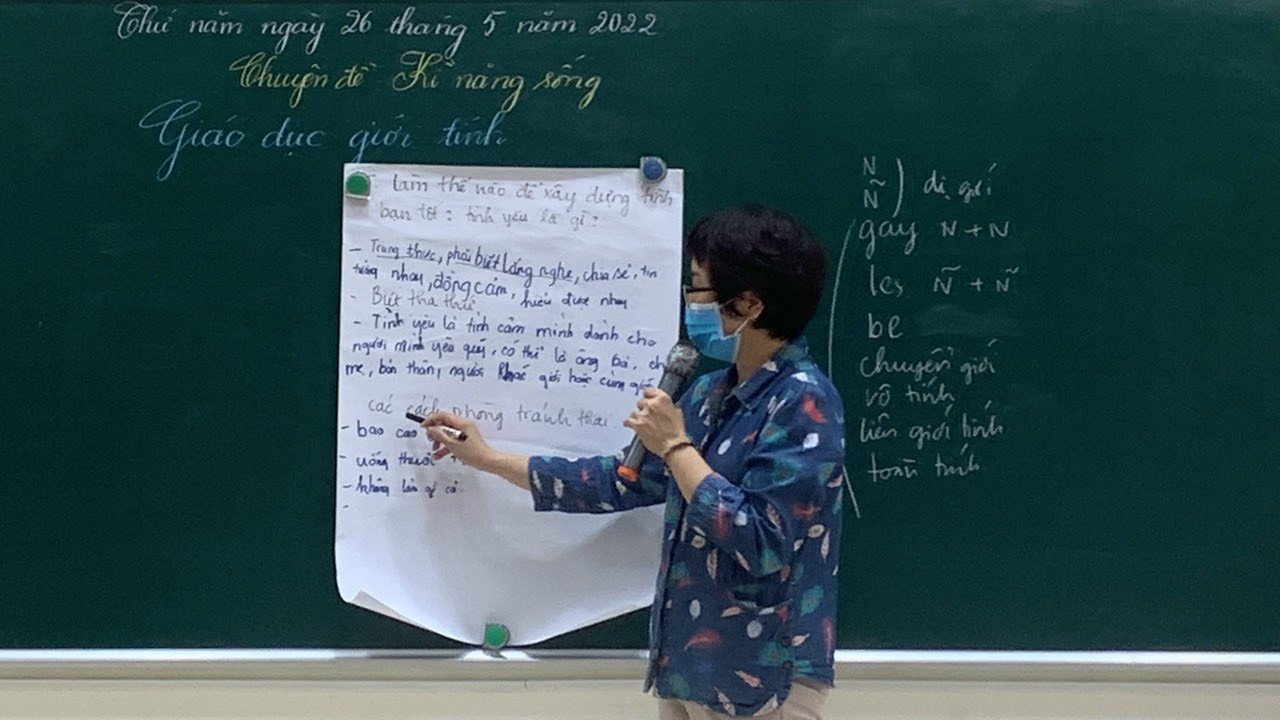 Thứ năm ngày 26 tháng 5 năm 2022
Chuyên đề Kĩ năng sống
Giáo dục giới tính
Làm thế nào để xây dựng tình
bạn tốt: tình yêu là gì?
- Trung thực, phải biết lắng nghe, chia sẻ, tin
tưởng nhau, đồng cảm, hiểu được nhau
- Biết tha thứ
- Tình yêu là tình cảm mình dành cho
người mình yêu quý, có thể là ông bà, cha
mẹ, bản thân, người khác giới hoặc cùng giới
các cách phòng tránh thai
- bao cao
- uống thuốc
- không làm gì cả.
-
N
Ñ ) dị giới
gay N + N
les Ñ + Ñ
be
chuyển giới
vô tính
liên giới tính
toàn tính